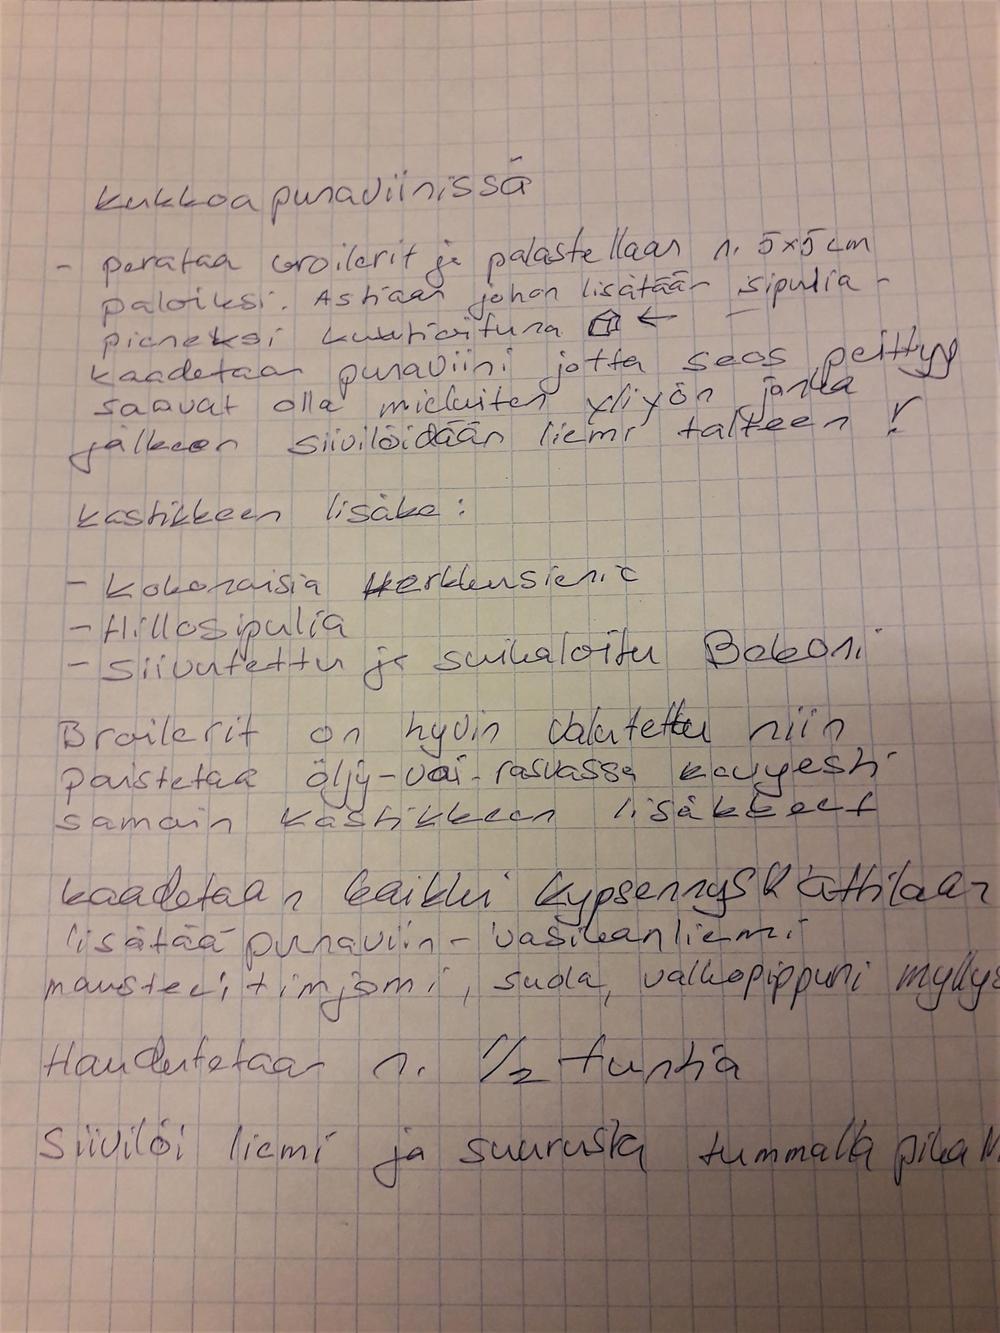 Kukkoa punaviinissä
- perataa broilerit ja palastellaan n. 5x5 cm
paloiksi. Astiaan johon lisätään sipulia -
pieneksi kuutioituna ←
kaadetaan punaviini jotta seos peittyy
saavat olla mieluiten yliyön jonka
jälkeen siivilöidään liemi talteen !
Kastikkeen lisäke:
- Kokonaisia Herkkusieniä
- Hillosipulia
- Siivutettu ja suikaloitu Bekoni
Broilerit on hyvin valutettu niin
paistetaa öljy-voi-rasvassa kevyesti
samoin kastikkeen lisäkkeet
kaadetaan kaikki kypsennyskattilaan
lisätää punaviin- vasikanliemi
mausteet; timjami, suola, valkopippuri myllys
Haudutetaan n. 1/2 tuntia
Siivilöi liemi ja suurusta tummalla pika M